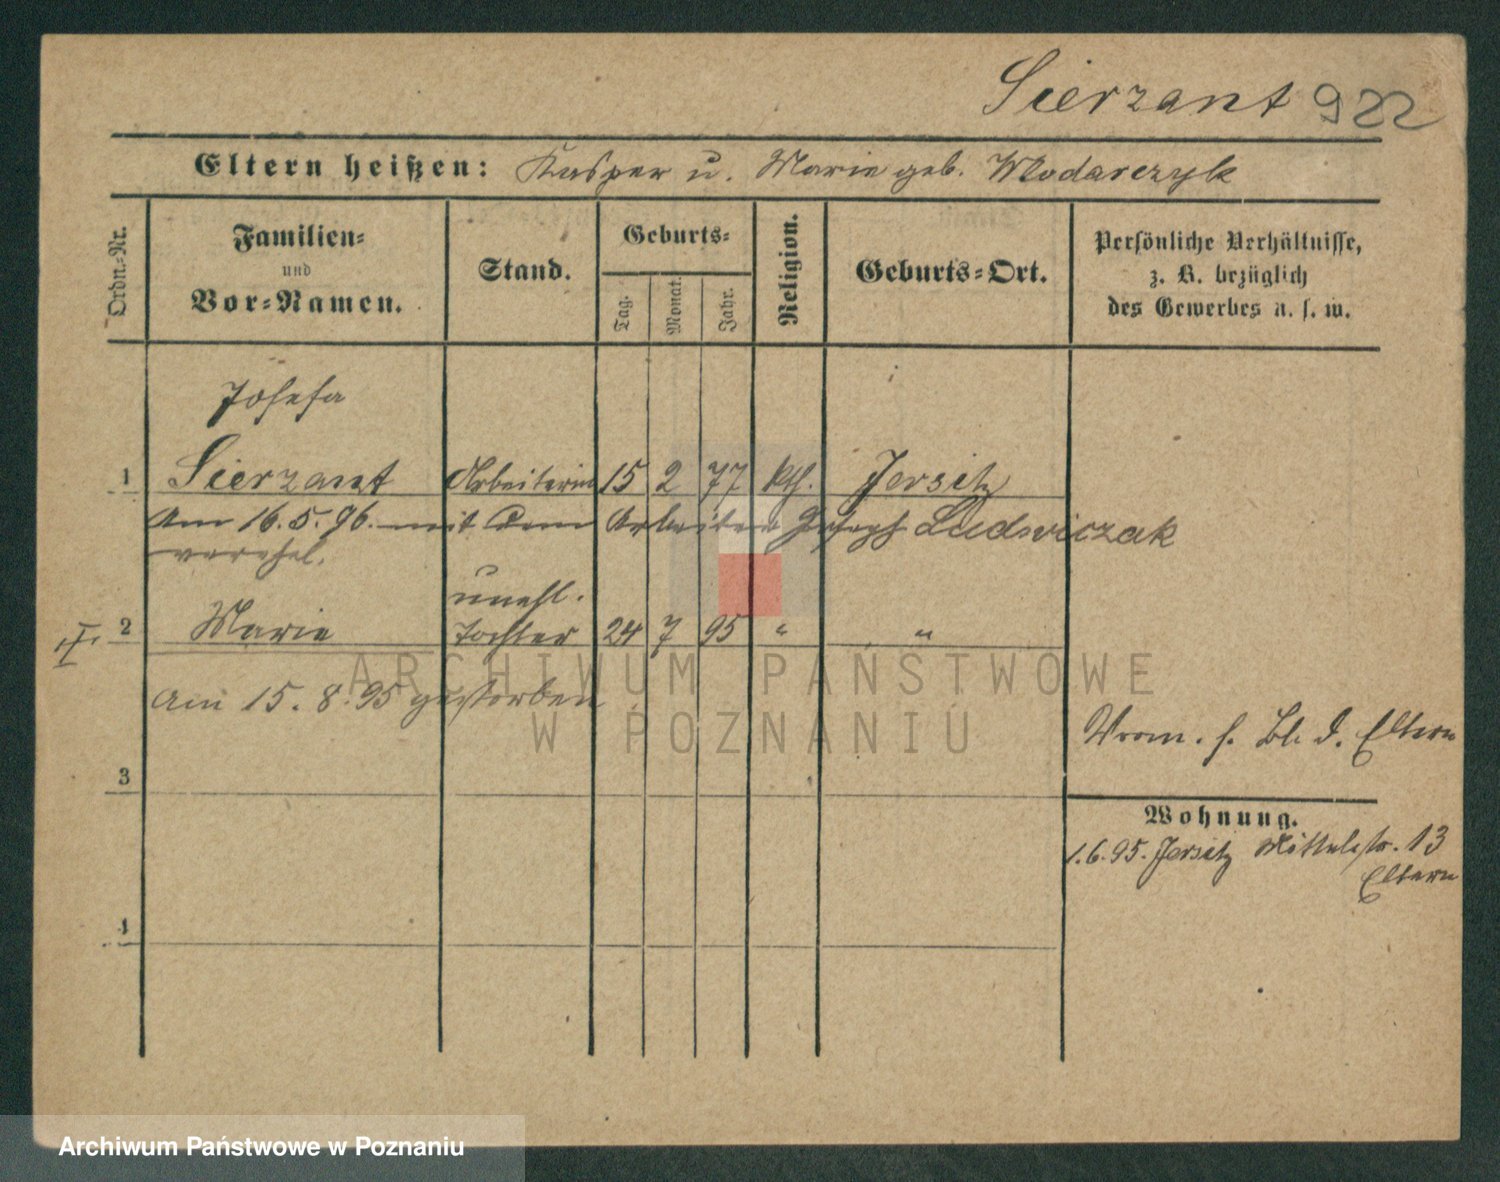 Sierzant 922
Eltern heißen: Kasper u. Marie geb. Wlodarczyk
Ordn.-Nr.
Familien- und Vor-Namen.
Stand.
Geburts-
Tag. Monat. Jahr.
Religion.
Geburts-Ort.
Persönliche Verhältnisse,
z. B. bezüglich
des Gewerbes u. s. w.
Josefa
1 Sierzant Arbeiterin 15 2 77 kth. Jersitz
Am 16.5.96. mit dem Arbeiter Joseph Ludwiczak
verehel.
unehl.
2 Marie Tochter 24 7 95 " "
am 15. 8. 95 gestorben
Vrom. s. Bl. d. Eltern
3
Wohnung.
1.6.95. Jersitz Mittelstr. 13
Eltern
4
ARCHIWUM PAŃSTWOWE
W POZNANIU
Archiwum Państwowe w Poznaniu